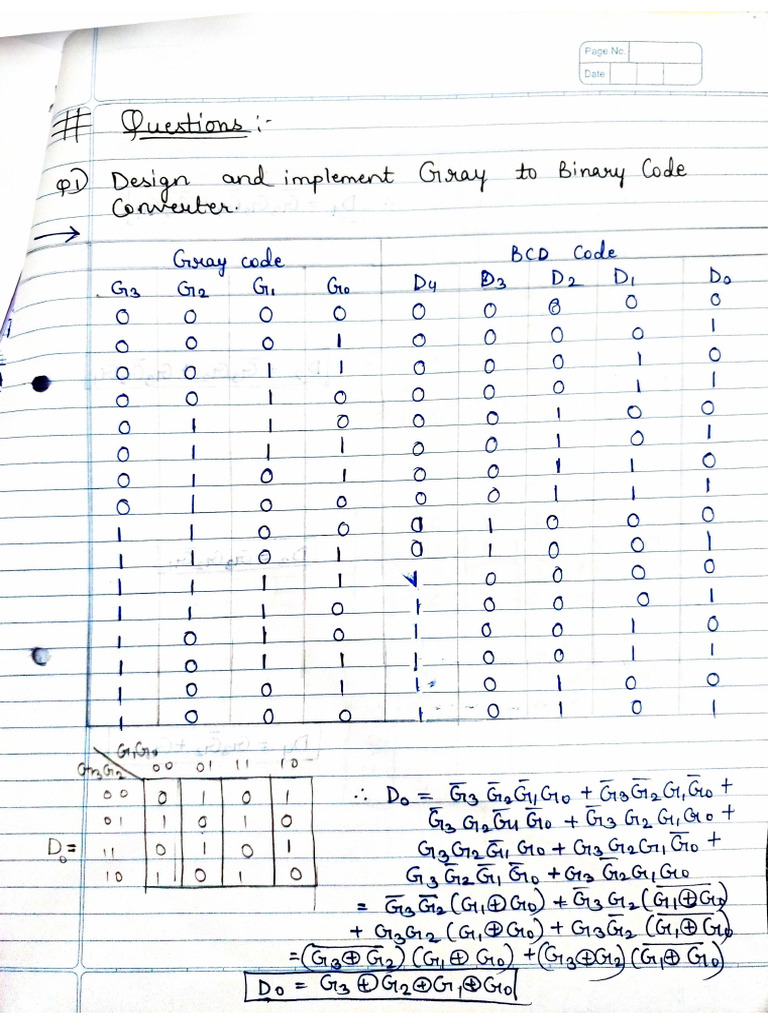 Page No.
Date
# Questions :-
Q1) Design and implement Gray to Binary Code
Converter.
→
Gray code BCD Code
G3 G2 G1 G0 D4 D3 D2 D1 D0
0 0 0 0 0 0 0 0 0
0 0 0 1 0 0 0 0 1
0 0 1 1 0 0 0 1 0
0 0 1 0 0 0 0 1 1
0 1 1 0 0 0 1 0 0
0 1 1 1 0 0 1 0 1
0 1 0 1 0 0 1 1 0
0 1 0 0 0 0 1 1 1
1 1 0 0 0 1 0 0 0
1 1 0 1 0 1 0 0 1
1 1 1 1 1 0 0 0 0
1 1 1 0 1 0 0 0 1
1 0 1 0 1 0 0 1 0
1 0 1 1 1 0 0 1 1
1 0 0 1 1 0 1 0 0
1 0 0 0 1 0 1 0 1
G1G0
G3G2 00 01 11 10
00 0 1 0 1
01 1 0 1 0
D0 = 11 0 1 0 1
10 1 0 1 0
∴ D0 = G̅3 G̅2 G̅1 G0 + G̅3 G̅2 G1 G̅0 +
G̅3 G2 G̅1 G̅0 + G̅3 G2 G1 G0 +
G3 G2 G̅1 G0 + G3 G2 G1 G̅0 +
G3 G̅2 G̅1 G̅0 + G3 G̅2 G1 G0
= G̅3 G̅2 (G1 ⊕ G0) + G̅3 G2 (G̅1̅ ̅⊕̅ ̅G̅0)
+ G3 G2 (G1 ⊕ G0) + G3 G̅2 (G̅1̅ ̅⊕̅ ̅G̅0)
= (G̅3̅ ̅⊕̅ ̅G̅2) (G1 ⊕ G0) + (G3 ⊕ G2) (G̅1̅ ̅⊕̅ ̅G̅0)
D0 = G3 ⊕ G2 ⊕ G1 ⊕ G0